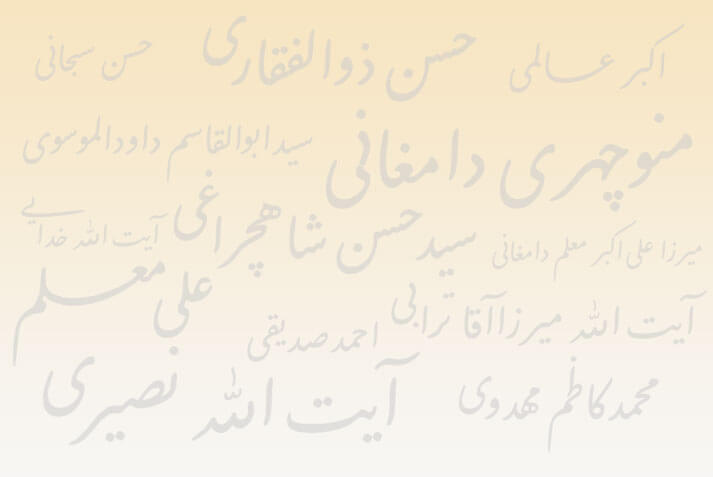 اکبر عالمی
حسن ذوالفقاری
حسن سبحانی
منوچهری دامغانی
سید ابوالقاسم داودالموسوی
میرزا علی اکبر معلم دامغانی
سید حسن شاهچراغی
آیت الله خدایی
علی معلم
آیت الله میرزا آقا ترابی
احمد صدیقی
محمد کاظم مهدوی
آیت الله نصیری